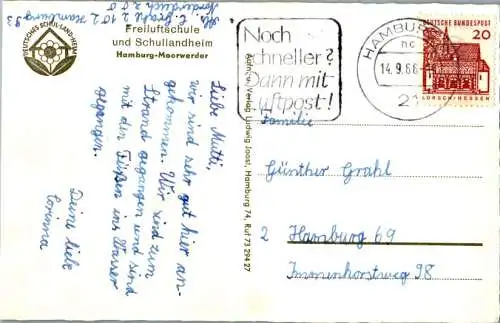 DEUTSCHES SCHUL-LAND-HEIM
Freiluftschule
und Schullandheim
Hamburg-Moorwerder
Liebe Mutti,
wir sind sehr gut hier an-
gekommen. Wir sind zum
Strand gegangen und sind
mit den Füßen ins Wasser
gegangen.
Deine liebe
Corinna
Verlag Ludwig Joost, Hamburg 74, Ruf 73 294 27
Noch
schneller?
Dann mit
Luftpost!
HAMBURG
14.9.66
2
DEUTSCHE BUNDESPOST
20
LORSCH/HESSEN
Familie
Günther Grahl
2 Hamburg 69
Immenhorstweg 98